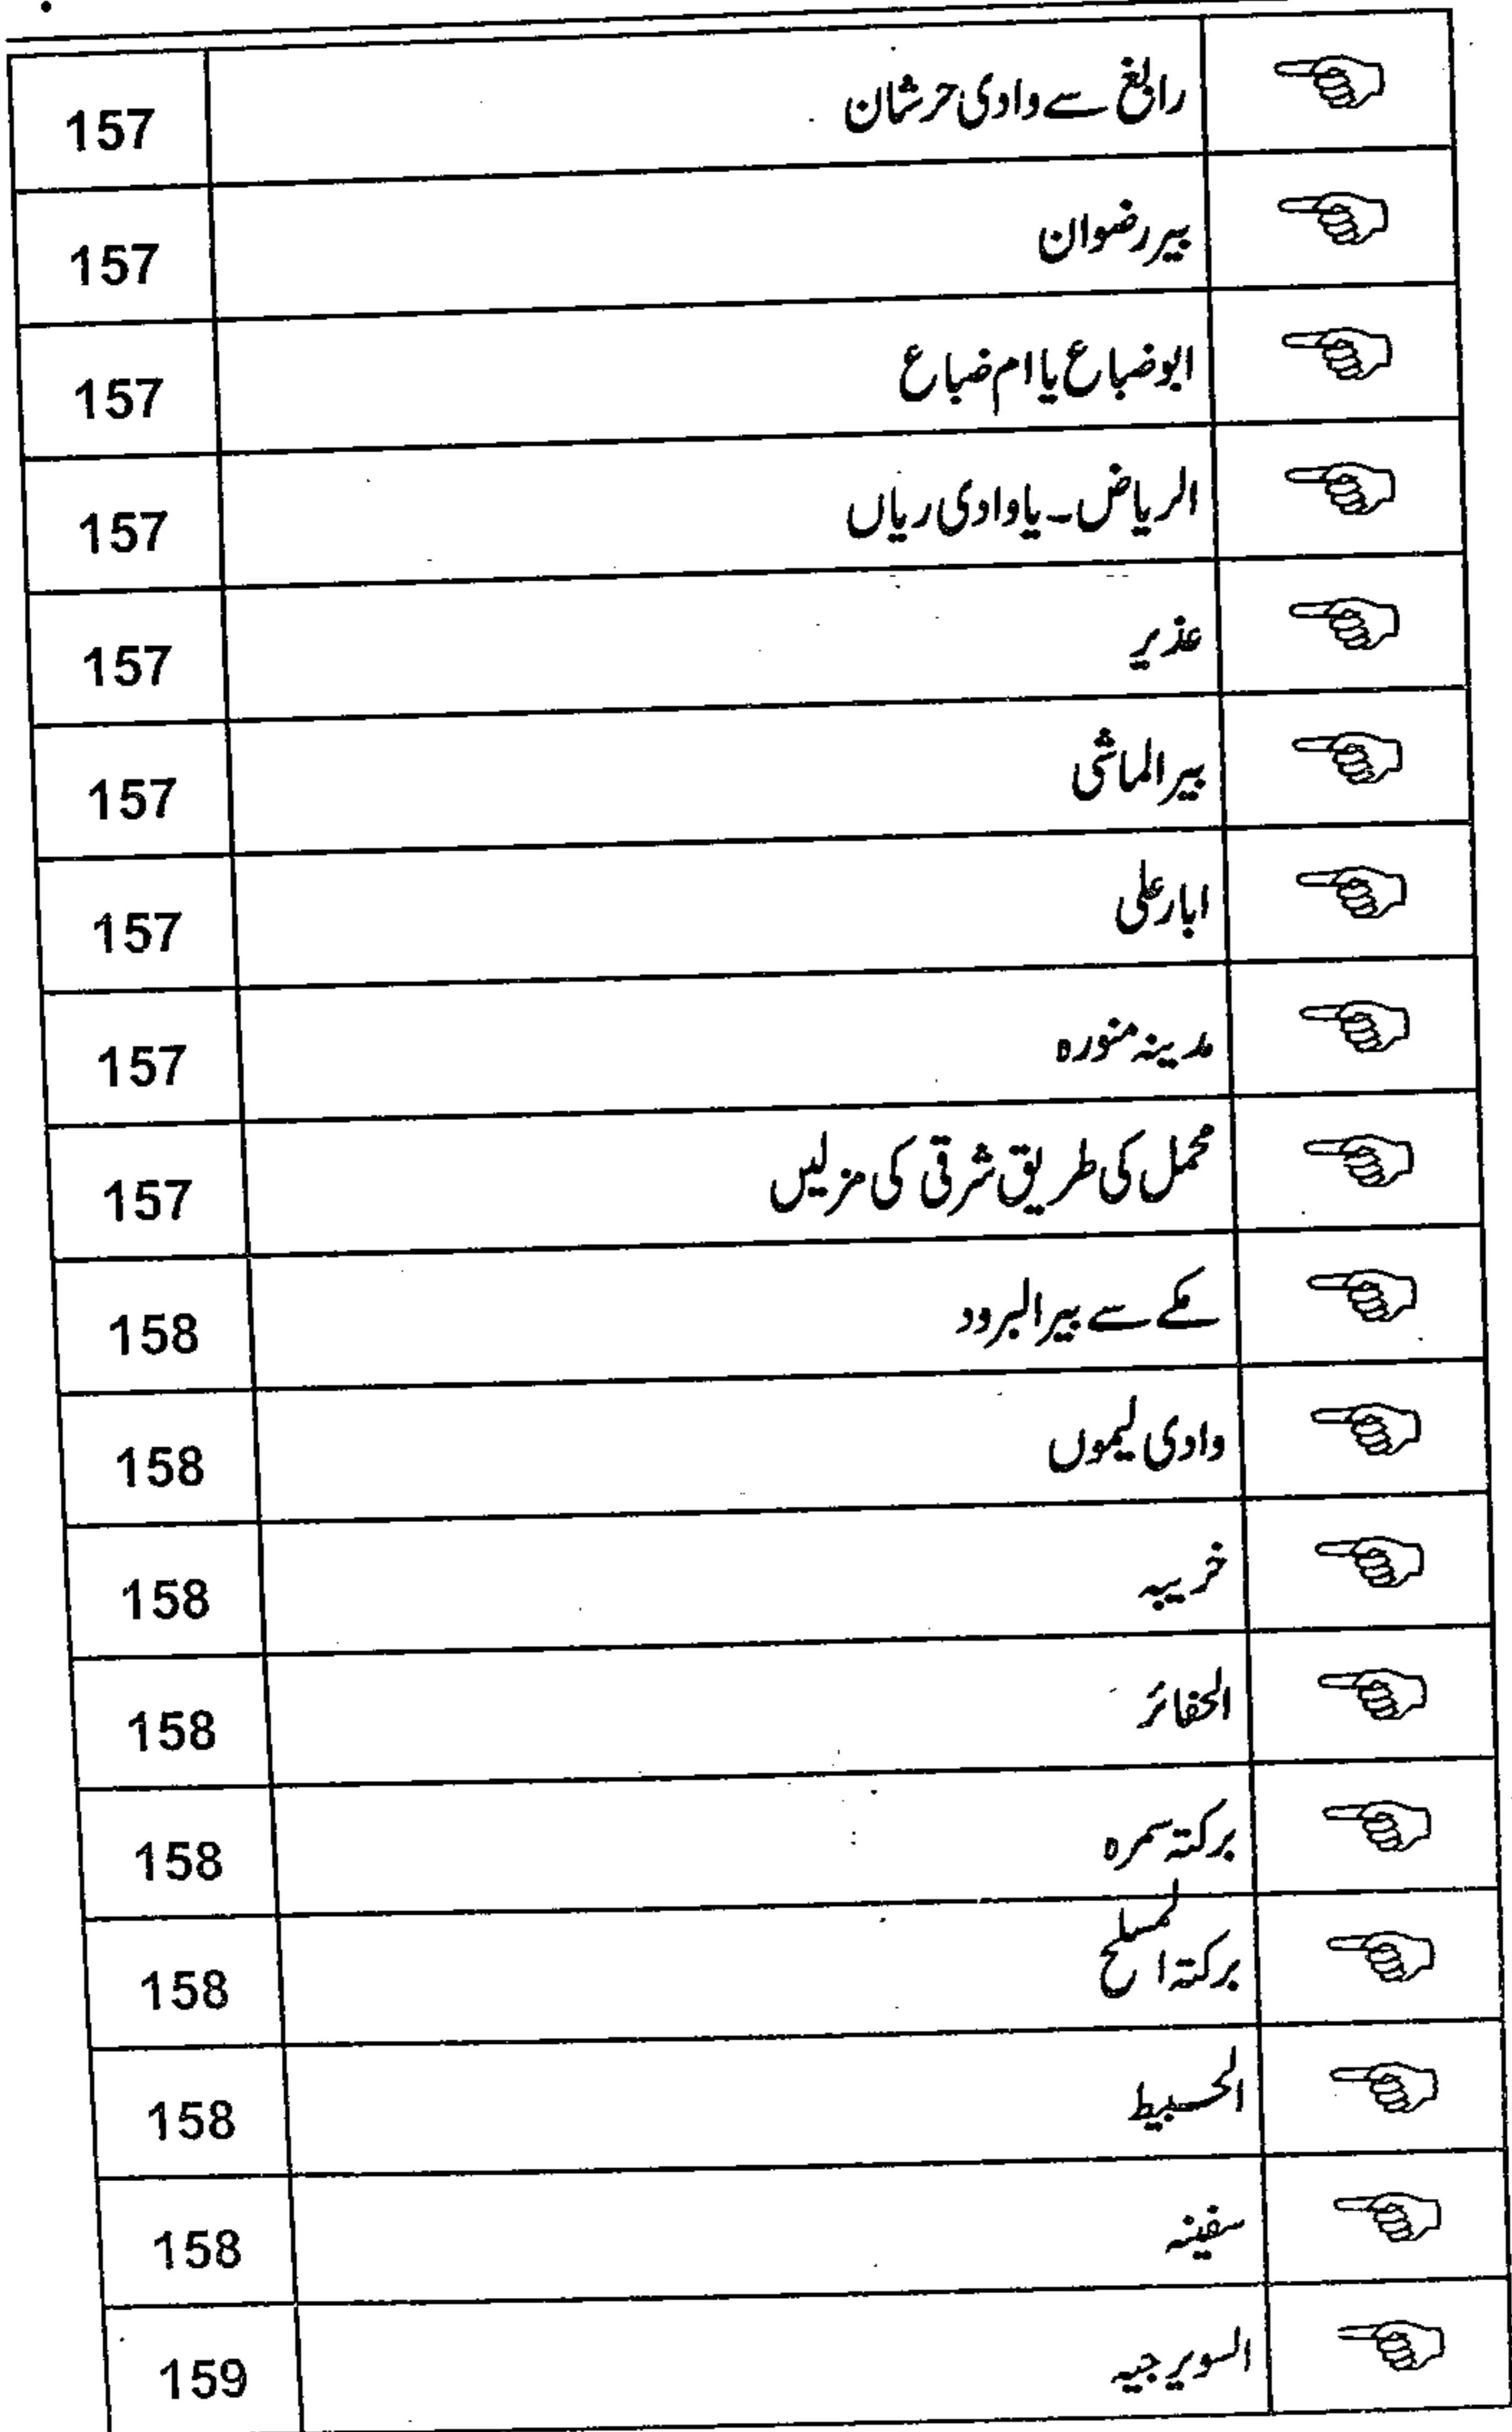 ☜ رابغ سے وادی حرشان 157
☜ بیر رضوان 157
☜ ابوضباع یا ام ضباع 157
☜ الریاض۔ یا وادی ریاں 157
☜ عذیر 157
☜ بیر الماشی 157
☜ ابار علی 157
☜ مدینہ منورہ 157
☜ محمل کی طریق شرقی کی منزلیں 157
☜ مکے سے بیر البرود 158
☜ وادی لیموں 158
☜ خریبہ 158
☜ الحفائر 158
☜ برکتہ سمرہ 158
☜ برکتہ المسلح 158
☜ الحسبیط 158
☜ سفینہ 158
☜ السویرجیہ 159